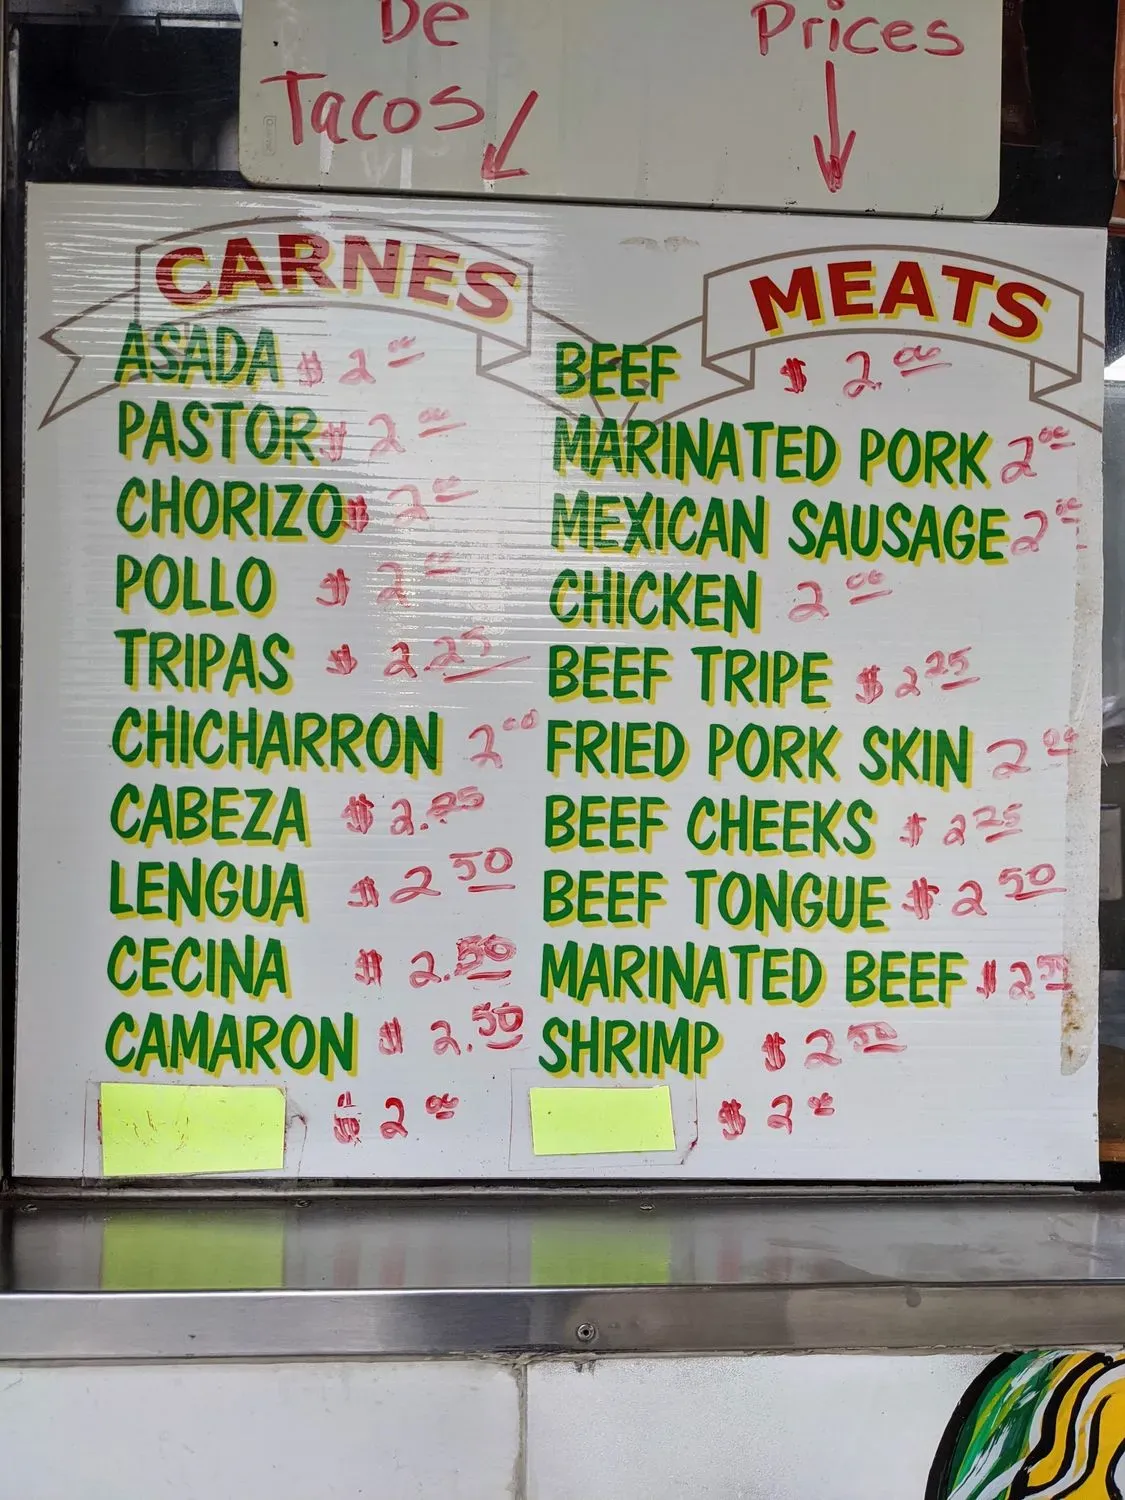 De
Tacos
Prices
CARNES
ASADA $ 2.00
PASTOR $ 2.00
CHORIZO $ 2.00
POLLO $ 2.00
TRIPAS $ 2.25
CHICHARRON 2.00
CABEZA $ 2.25
LENGUA $ 2 50
CECINA $ 2.50
CAMARON $ 2.50
$ 2 00
MEATS
BEEF $ 2.00
MARINATED PORK 2 00
MEXICAN SAUSAGE 2 00
CHICKEN 2 00
BEEF TRIPE $ 2 25
FRIED PORK SKIN 2 00
BEEF CHEEKS $ 2 25
BEEF TONGUE $ 2 50
MARINATED BEEF $ 2 50
SHRIMP $ 2 50
$ 2 00